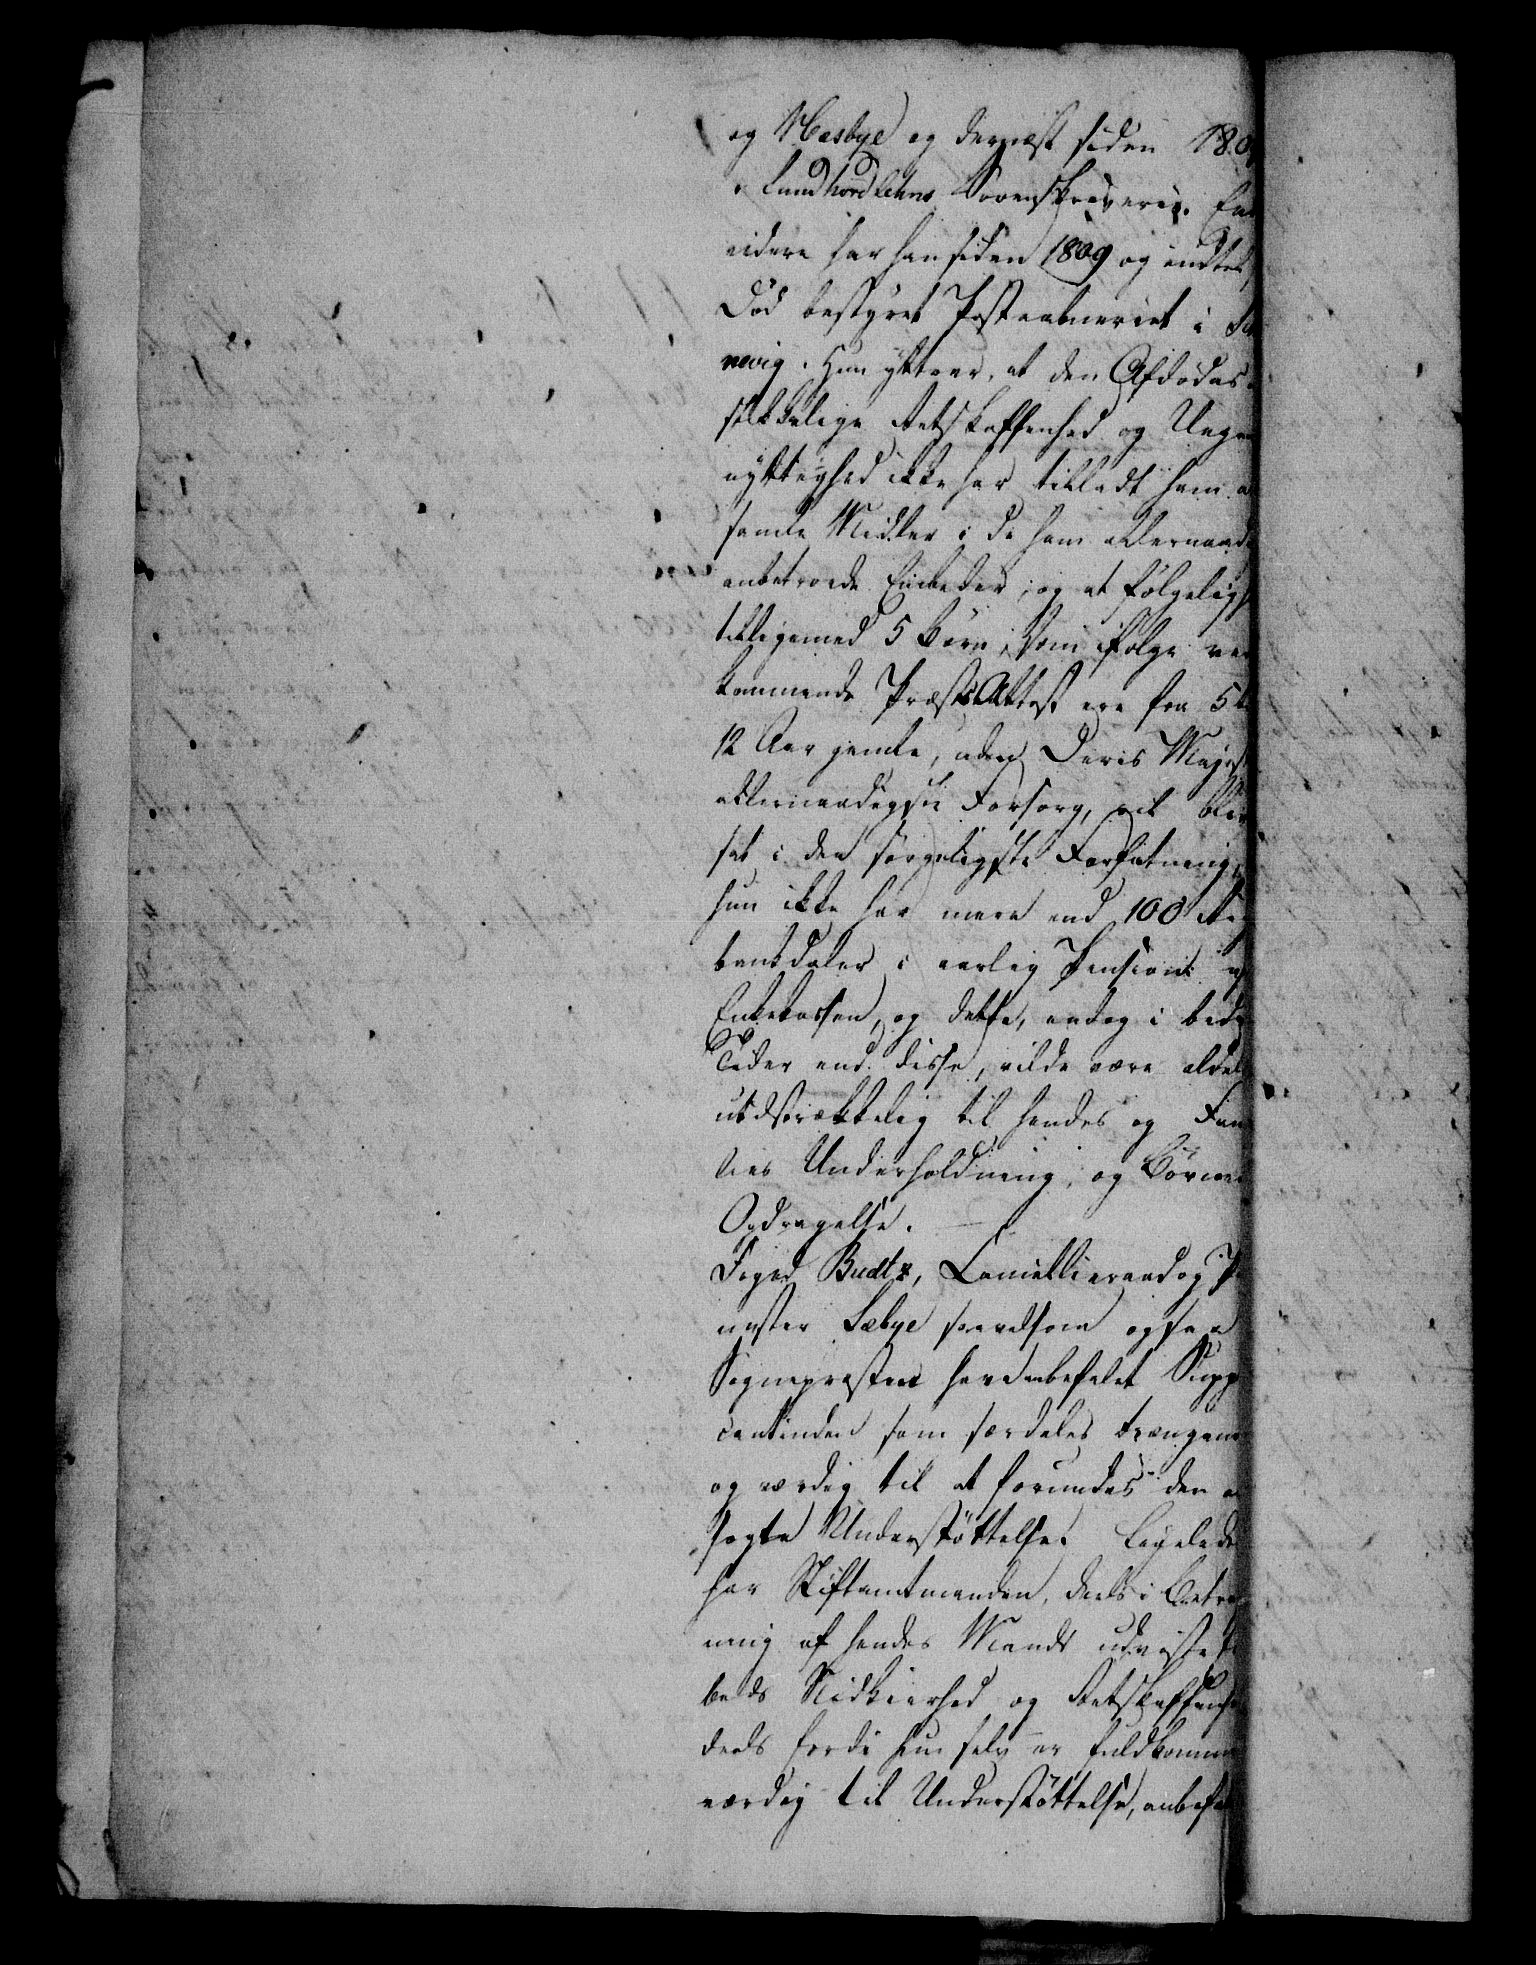 og Næsbye og dernæst siden 180
i Sundhordlehns Sorenskriverie. End
videre har han siden 1809 og indtil
Død bestyret Postaabneriet i
nevig. Hun yttrer, at den Afdødes
Retskaffenhed og Uegen
nyttighed ikke har tilladt ham a
samle Midler i de ham allernaad
anbetroede Embeder, og at følgelig
tilligemed 5 Børn, som ifølge ved
kommende Præsts Attest ere fra 5 t
12 Aar gamle, uden Deres Majest
allernaadigste Forsorg, vil bliv
sat i den sørgeligste Forfatning,
hun ikke har mere end 100 Rig
bankdaler i aarlig Pension af
Enkekassen, og dette, endog i bedr
Tider end disse, vilde være aldel
utilstrækkelig til hendes og Fam
lies Underholdning, og Børne
Opdragelse.
Foged Budtz, Cancellieraad og P
mester Sæbye saavelsom ogsaa
Sognepræsten have anbefalet Supp
cantinden som særdeles trængend
og værdig til at forundes den a
søgte Understøttelse. Ligelede
har Stiftamtmanden, deels i Betra
ning af hendes Mands udviste E
beds Nidkierhed og Retskaffenh
deels fordi hun selv er fuldkomme
værdig til Understøttelse, anbefal